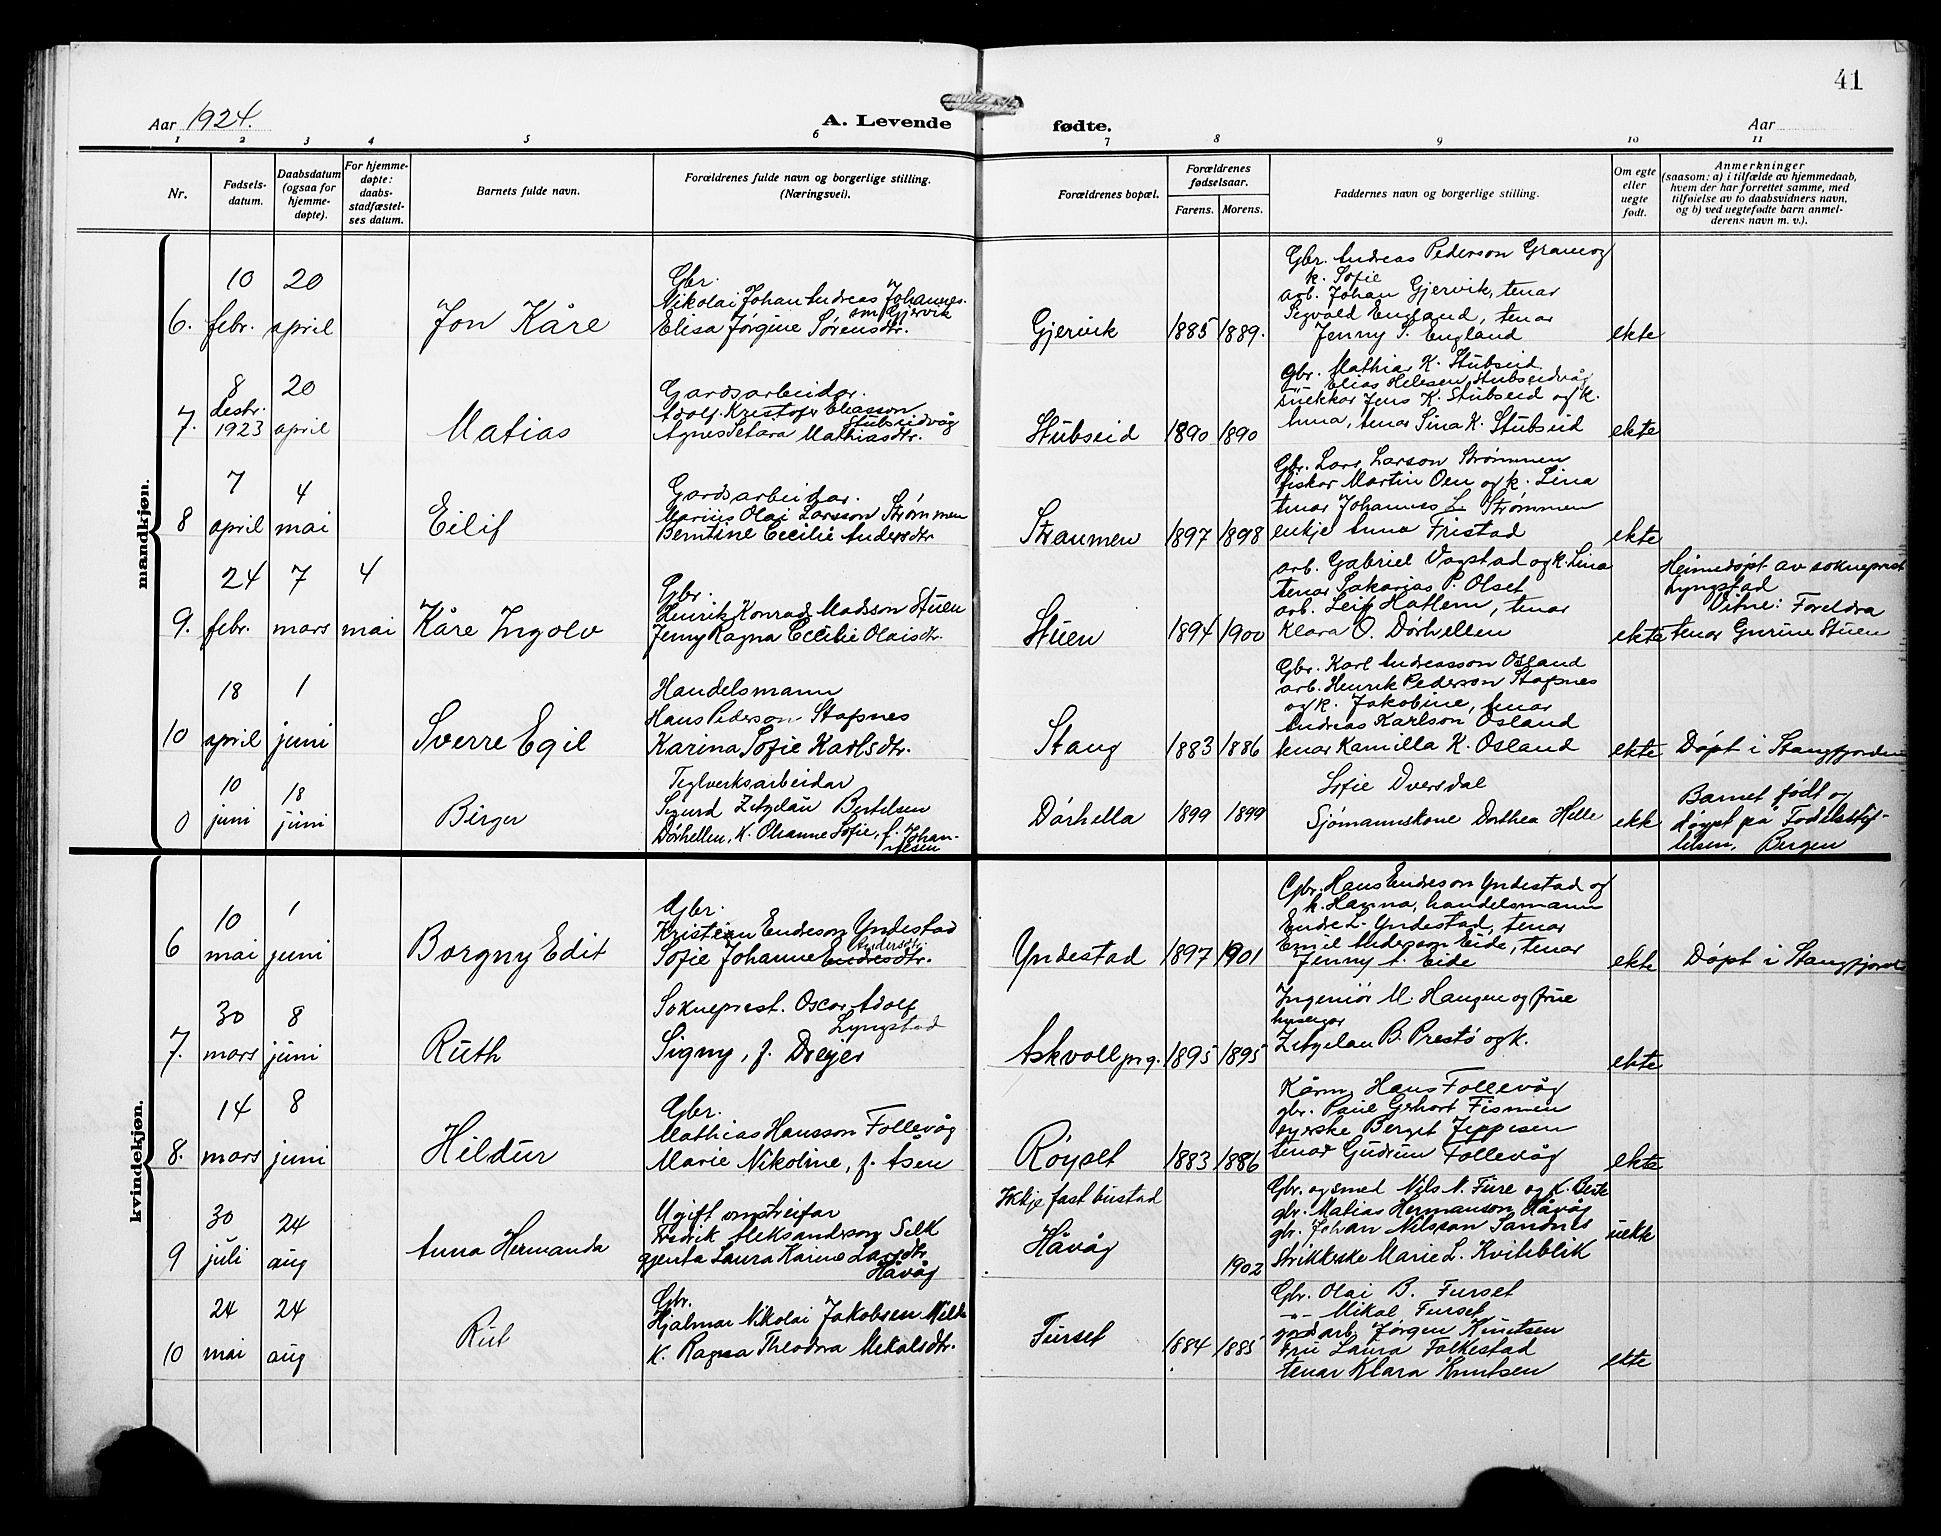 41
Aar 1924.
A. Levende fødte.
Aar
1 2 3 4 5 6 7 8 9 10 11
Nr.
Fødsels-
datum.
Daabsdatum
(ogsaa for
hjemme-
døpte).
For hjemme-
døpte:
daabs-
stadfæstel-
ses datum.
Barnets fulde navn.
Forældrenes fulde navn og borgerlige stilling.
(Næringsvei).
Forældrenes bopæl.
Forældrenes
fødselsaar.
Farens. Morens.
Faddernes navn og borgerlige stilling.
Om egte
eller
uegte
født.
Anmerkninger
(saasom: a) i tilfælde av hjemmedaab,
hvem der har forrettet samme, med
tilføielse av to daabsvidners navn,
og b) ved uegtefødte barn anmel-
derens navn m. v.).
mandkjøn.
6.
10
febr.
20
april
Jon Kåre
Gbr.
Nikolai Johan Andreas Johannes-
son Gjervik
Elisa Jørgine Sørensdtr.
Gjervik
1885 1889.
Gbr. Andreas Pederson Gram og
k. Sofie
arb. Johan Gjervik, tenar
Sigvald England, tenar
Jenny S. England
ekte
7.
8
desbr.
1923
20
april
Matias
Gardsarbeidar.
Adolf Kristofer Eliasson
Stubseidvåg
Agnes Mathiasdtr.
Stubseid
1890 1890
Gbr. Mathias K. Stubseid
Elias Stubseidvåg
snekkar Jens K. Stubseid og k.
Anna, tenar Sina K. Stubseid
ekte
8
7
april
4
mai
Eilif
Gardsarbeidar.
Marius Olai Larsson Strømmen
Berntine Cecilie Andersdtr
Straumen
1897 1898
Gbr. Lars Larson Strømmen
fiskar Martin Oen og k. Lina
tenar Johannes L. Strømmen
enkje Anna Fristad
ekte
9.
24
febr.
7
mars
4
mai
Kåre Ingolv
Gbr.
Henrik Konrad Madsson Stuen
Jenny Ragna Cecilie Olaisdtr.
Stuen
1894 1900
arb. Gabriel Vagstad og k. Lina
tenar Sakarias P. Olset
arb. Leif Hatlem, tenar
Klara O. Dørhellen
ekte
Heimedøpt av sokneprest
Lyngstad
Vitne: Foreldra
tenar Gurine Stuen
10
18
april
1
juni
Sverre Egil
Handelsmann
Hans Pederson Stapnes
Karina Sofie Karlsdtr.
Stang
1883 1886
Gbr. Karl Andreasson Osland
arb. Henrik Pederson Stapnes
og k. Jakobine, tenar
Andreas Karlson Osland
tenar Kamilla K. Osland
ekte
Døpt i Stangfjorden
0
10
juni
18
juni
Birger
Teglverksarbeidar
Sigurd Zetzelau Bertelsen
Dørhellen, K. Oleanne Sofie, f. Johan-
nesen
Dørhella
1899 1899
Sofie Dversdal
Sjømannskone Dorthea Hille
ekte
Barnet født og
døypt på Fødselsstif-
telsen, Bergen
kvindekjøn.
6
10
mai
1
juni
Borgny Edit
Gbr.
Kristian Endreson Yndestad
Andersdtr.
Sofie Johanne Endresdtr.
Yndestad
1897 1901
Gbr. Hans Endreson Yndestad og
k. Hanna, handelsmann
Endre L. Yndestad, tenar
Emil Anderson Eide, tenar
Jenny A. Eide
ekte
Døpt i Stangfjorden
7.
30
mars
8
juni
Ruth
Sokneprest. Oscar Adolf
Lyngstad
Signy, f. Dreyer
Askvoll prg.
1895 1895
Ingeniør M. Haugen og frue
huseigar
Zetzelau B. Prestø og k.
ekte
8.
14
mars
8
juni
Hildur
Gbr.
Mathias Hansson Follevåg
Marie Nikoline, f. Åsen
Røyset
1883 1886
Kårm. Hans Follevåg
gbr. Paul Gerhart Fismen
syerske Berget Jeppesen
tenar Gudrun Follevåg
ekte
9
30
juli
24
aug
Anna Hermanda
Ugift omstreifar
Fredrik Aleksanderson Selk
gjenta Laura Karine Larsdtr
Håvåg
Ikkje fast bustad
Håvåg
1902
Gbr. og smed Nils N. Fure og K. Berte
gbr. Matias Hermanson Håvåg
gbr. Johan Nilsson Sandnes
Strikkerske Marie L. Kviteblik
uekte
10
24
mai
24
aug
Rut
Gbr.
Hjalmar Nikolai Jakobsen Milde
K. Ragna Theodora Mikalsdtr.
Furset
1884 1885
Gbr. Olai B. Furset
-"- Mikal Furset
gardsarb. Jørgen Knutsen
Fru Laura Folkestad
tenar Klara Knutsen
ekte